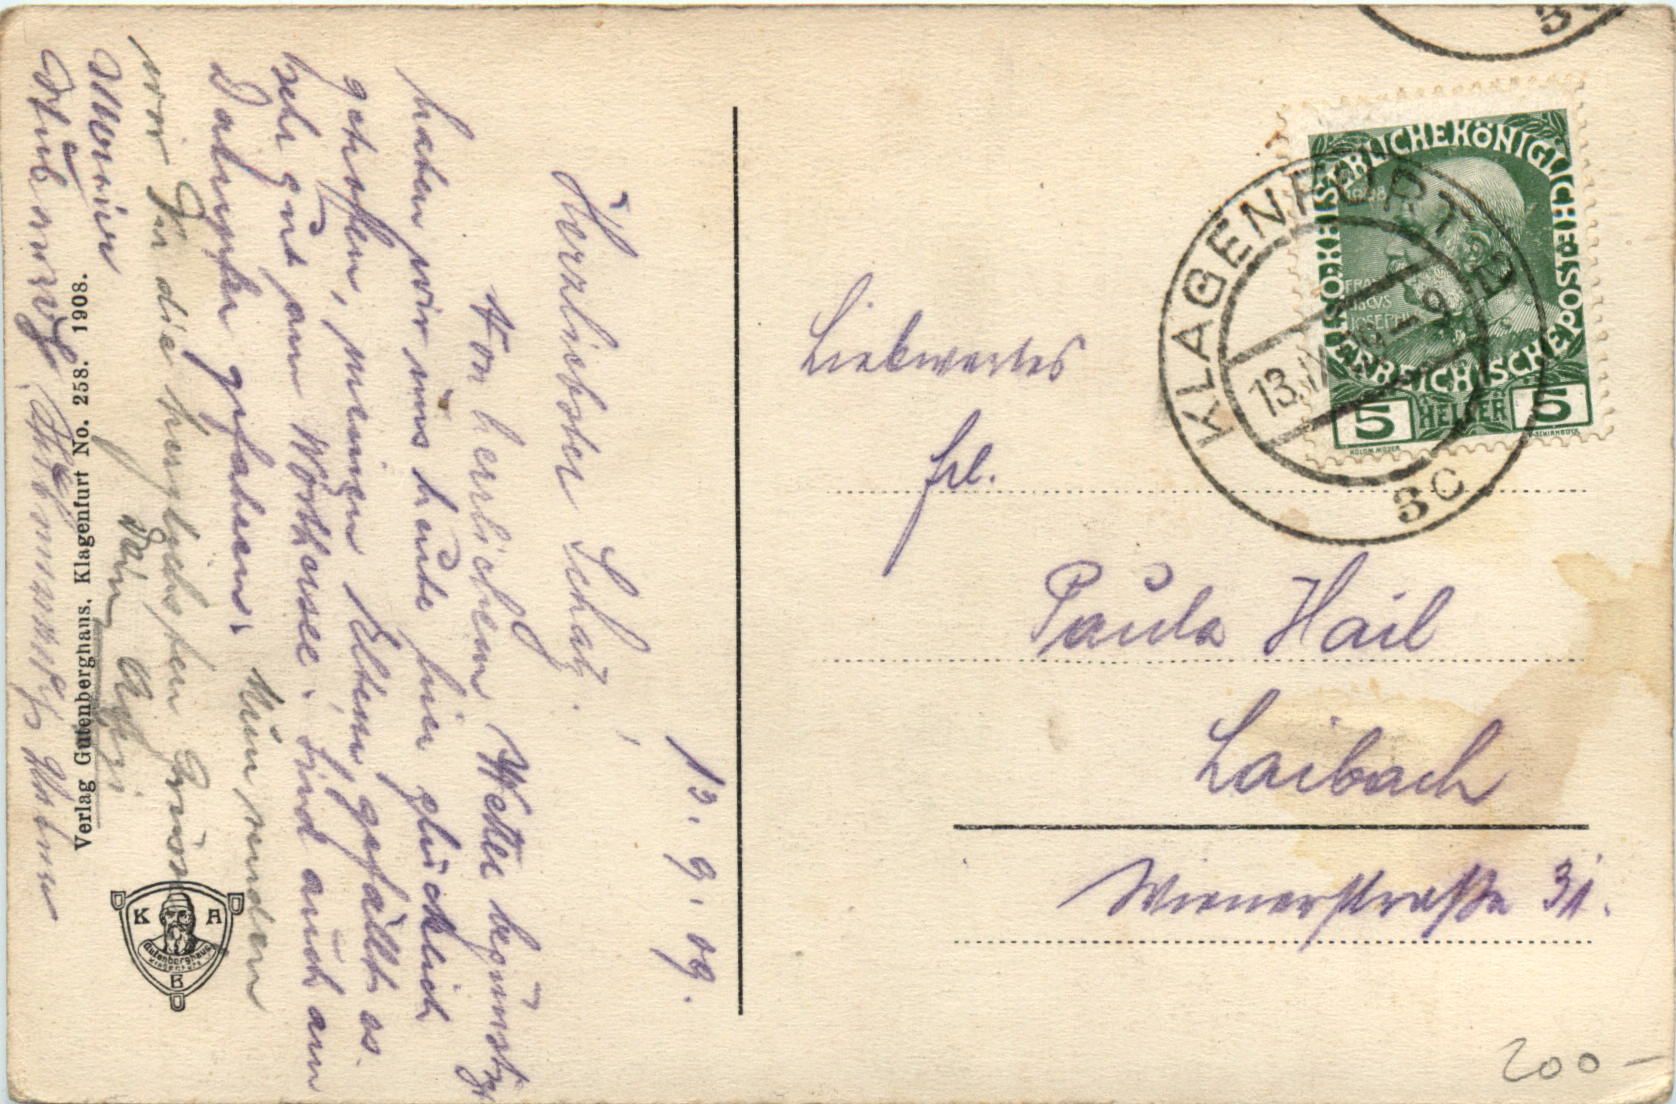 13. 9. 09.
Herzliebster Schatz!
Von herrlichem Wetter begünstigt
haben wir uns heute hier glücklich
getroffen, meinen Eltern gefällt es
sehr gut am Wörthersee, sind auch am
Dampfer gefahren. Nun senden
wir Dir die herzlichsten Grüsse
Dein
Verlag Gutenberghaus, Klagenfurt No. 258. 1908.
K A B
Gutenberghaus
Klagenfurt
Liebwertes
Frl.
Paula Hail
Laibach
Wienerstraße 31.
KAISERLICHE KÖNIGLICHE
ÖSTERREICHISCHE POST
FRANCISCVS
JOSEPH I
5 HELLER 5
KOLOM. MOSER
F. SCHIRNBÖCK
KLAGENFURT 2
13.
9
3c
200 -